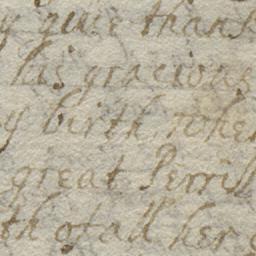 y giue thank
his gracious
y birth, when
great Perrill
th of all her